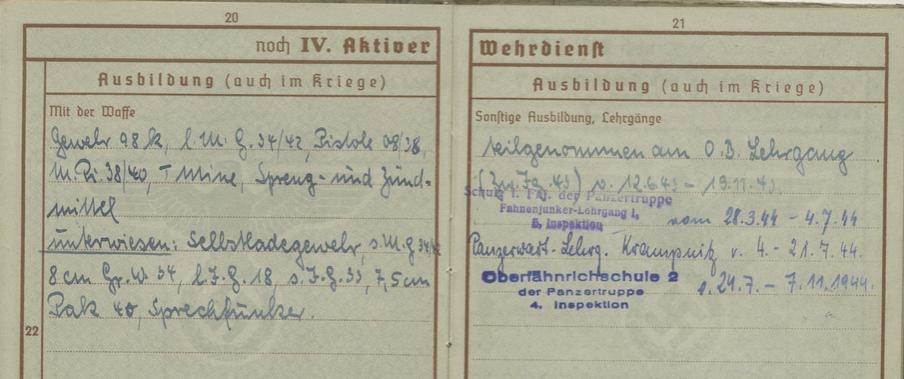 20
noch IV. Aktiver
Ausbildung (auch im Kriege)
Mit der Waffe
Gewehr 98 k, l. M. G. 34/42, Pistole 08/38,
M. Pi. 38/40, T Mine, Spreng- und Zünd-
mittel
unterwiesen: Selbstladegewehr, s. M. G 34/42
8 cm Gr. W 34, l. I. G. 18, s. I. G. 33, 7,5 cm
Pak 40, Sprechfunker.
22
21
Wehrdienst
Ausbildung (auch im Kriege)
Sonstige Ausbildung, Lehrgänge
teilgenommen am O. B. Lehrgang
v. 12.6.43 - 19.11.43.
Schule f. Fhj. der Panzertruppe
Fahnenjunker-Lehrgang I,
5. Inspektion
vom 28.3.44 - 4.7.44
Panzerwart-Lehrg. Krampnitz v. 4. - 21.7.44.
Oberfähnrichschule 2
der Panzertruppe
4. Inspektion
v. 24.7. - 7.11.1944.